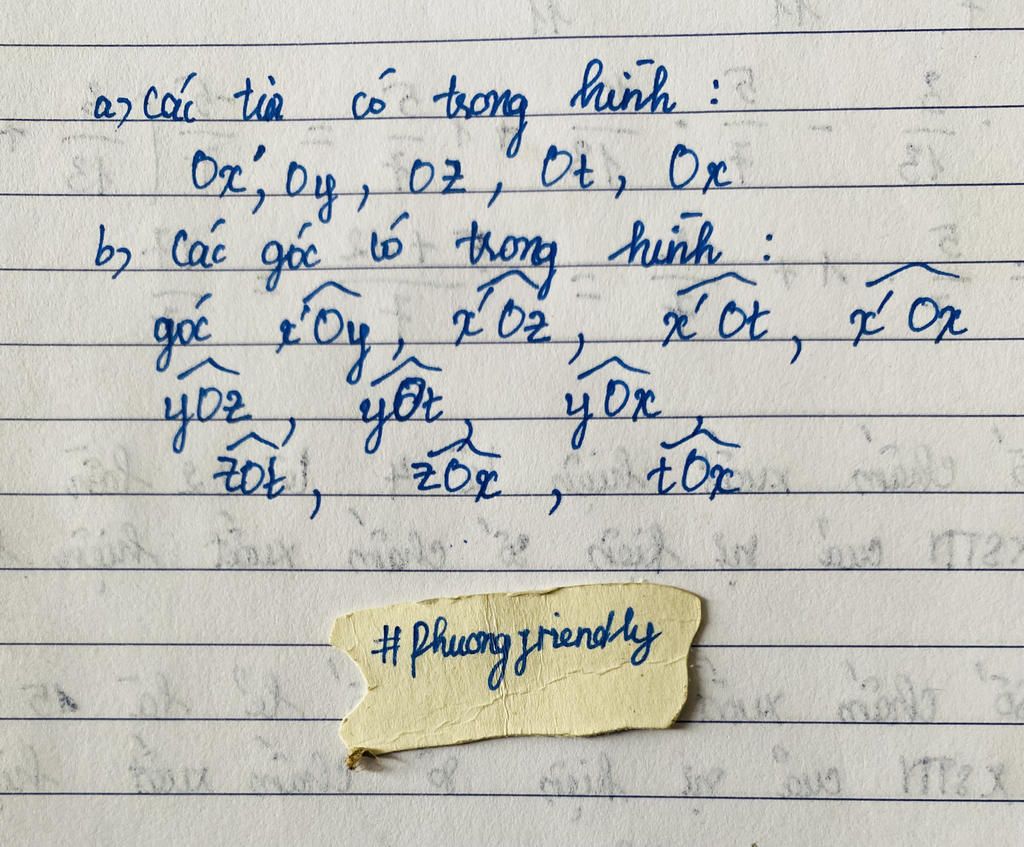 a) các tia có trong hình :
Ox', Oy, Oz, Ot, Ox
b) các góc có trong hình :
góc x'Oy, x'Oz, x'Ot, x'Ox
yOz, yOt, yOx,
zOt, zOx, tOx
#phuongfriendly